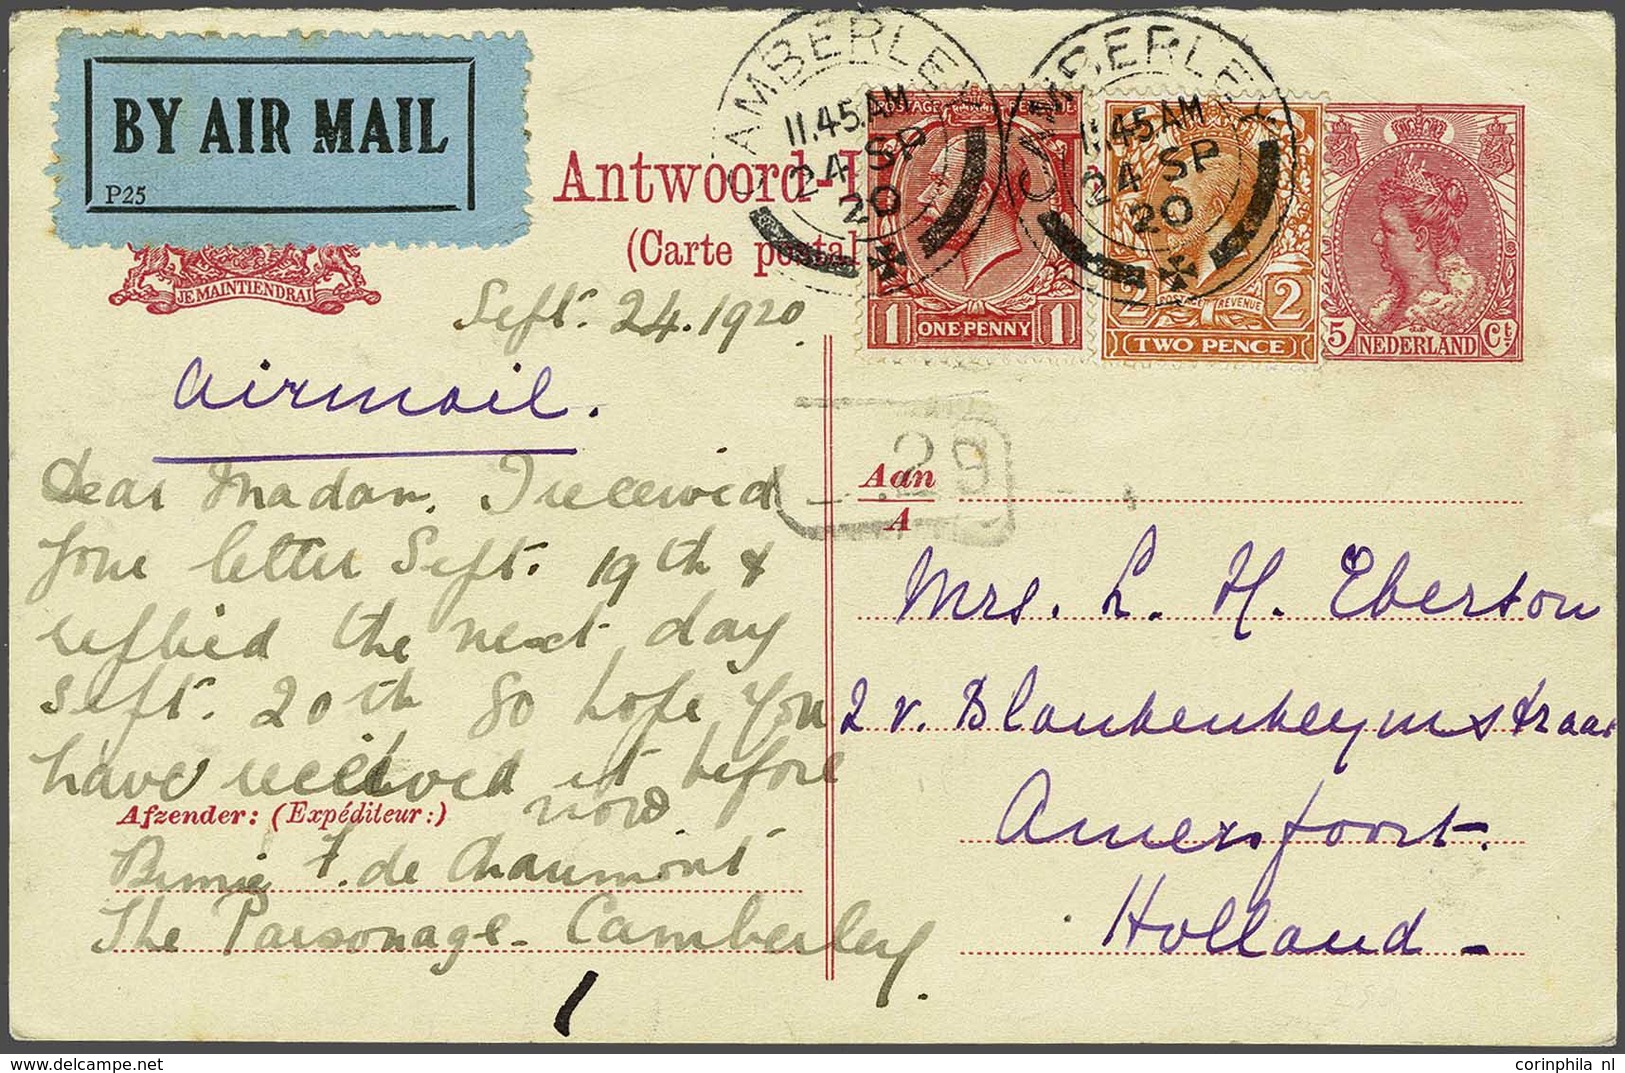 BY AIR MAIL
P25
JE MAINTIENDRAI
Antwoord-
(Carte postal
CAMBERLEY
11.45 AM
24 SP
20
CAMBERLEY
11.45 AM
24 SP
20
POSTAGE REVENUE
1 ONE PENNY 1
2 POSTAGE REVENUE 2
TWO PENCE
5 NEDERLAND Ct
Sept. 24. 1920
Airmail.
Dear Madam. I received
your letter Sept. 19th &
replied the next day
Sept. 20th so hope you
have received it before
now.
Afzender: (Expéditeur:)
F. de Chaumont
The Parsonage - Camberley.
29
Aan
A
Mrs. L. H. Eberson
2 v. Blankenheymstraat
Amersfoort.
Holland -
corinphila nl